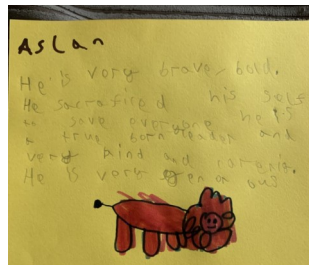 Aslan
He is very brave, bold.
He sacrafired his self
to save everyone he is
a true born leader and
very kind and
He is very generous